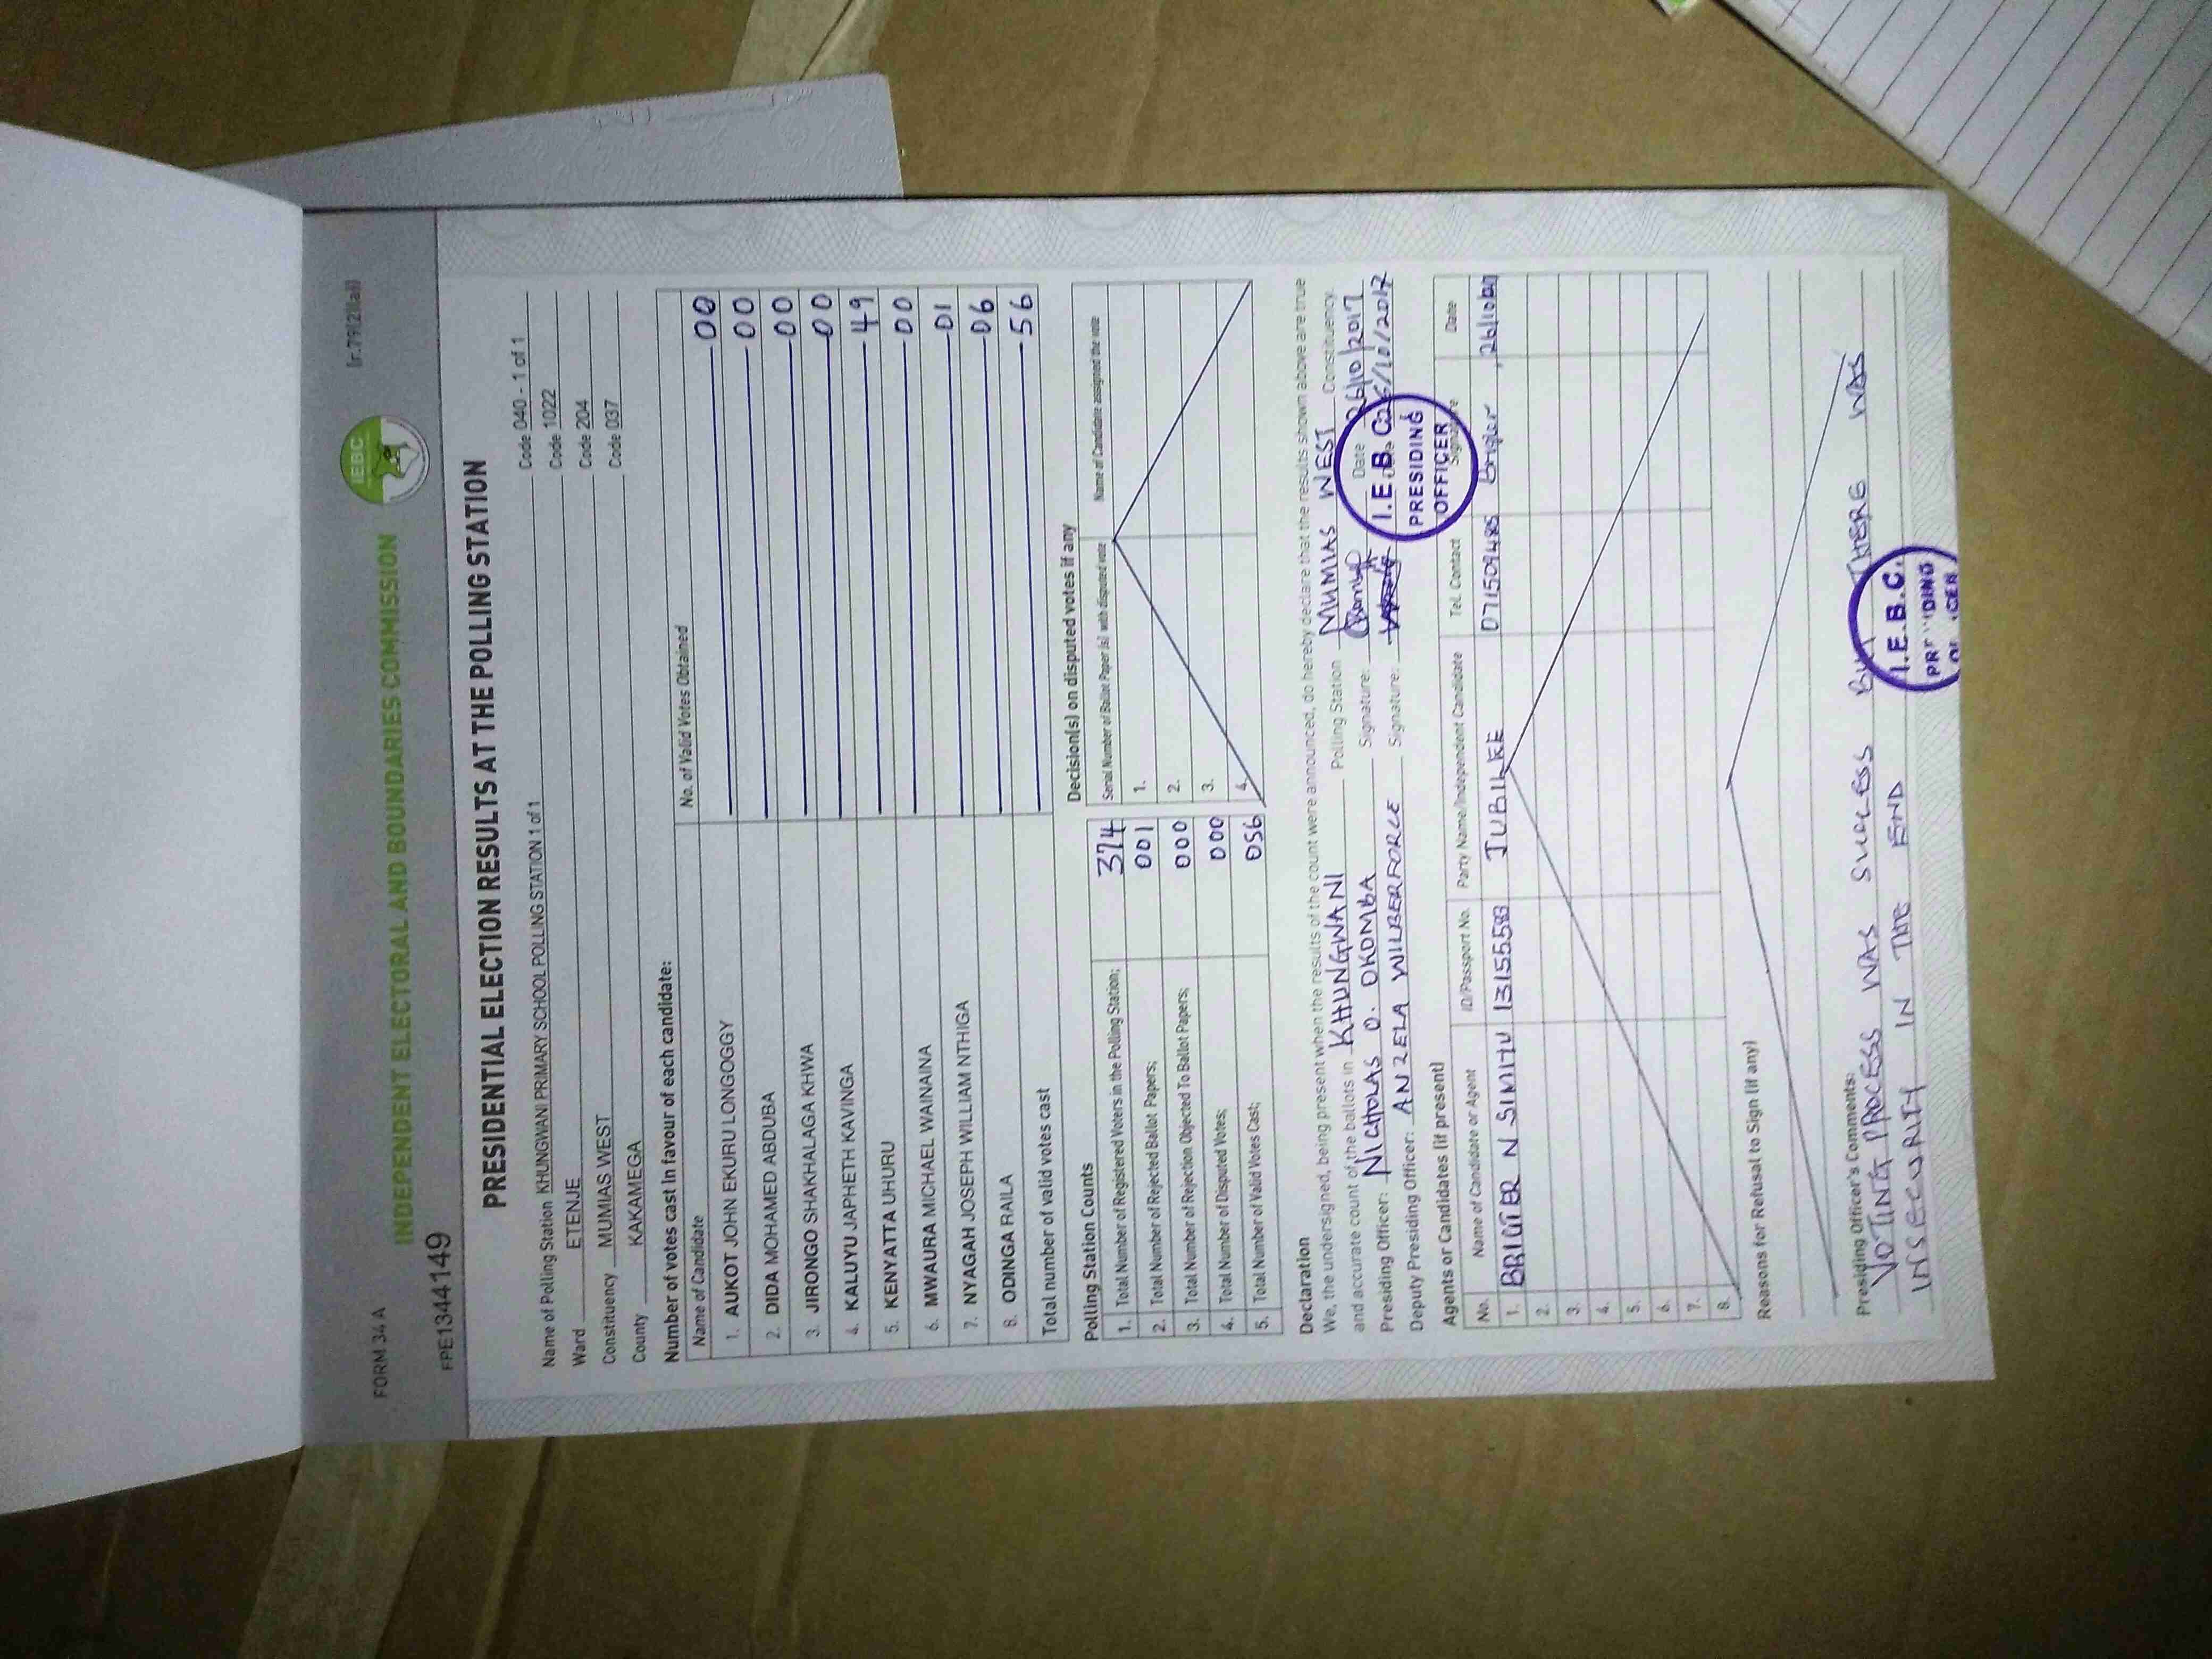 FORM 34 A
INDEPENDENT ELECTORAL AND BOUNDARIES COMMISSION
IEBC
(r.79(2)(a))
FPE1344149
PRESIDENTIAL ELECTION RESULTS AT THE POLLING STATION
Name of Polling Station KHUNGWANI PRIMARY SCHOOL POLLING STATION 1 of 1 Code 040 - 1 of 1
Ward ETENJE Code 1022
Constituency MUMIAS WEST Code 204
County KAKAMEGA Code 037
Number of votes cast in favour of each candidate:
Name of Candidate No. of Valid Votes Obtained
1. AUKOT JOHN EKURU LONGOGGY 00
2. DIDA MOHAMED ABDUBA 00
3. JIRONGO SHAKHALAGA KHWA 00
4. KALUYU JAPHETH KAVINGA 00
5. KENYATTA UHURU 49
6. MWAURA MICHAEL WAINAINA 00
7. NYAGAH JOSEPH WILLIAM NTHIGA 01
8. ODINGA RAILA 06
Total number of valid votes cast 56
Polling Station Counts
1. Total Number of Registered Voters in the Polling Station; 374
2. Total Number of Rejected Ballot Papers; 001
3. Total Number of Rejection Objected To Ballot Papers; 000
4. Total Number of Disputed Votes; 000
5. Total Number of Valid Votes Cast; 056
Decision(s) on disputed votes if any
Serial Number of Ballot Paper (s) with disputed vote Name of Candidate assigned the vote
1.
2.
3.
4.
Declaration
We, the undersigned, being present when the results of the count were announced, do hereby declare that the results shown above are true
and accurate count of the ballots in KHUNGWANI Polling Station MUMIAS WEST Constituency.
Presiding Officer: NICHOLAS O. OKOMBA Signature: Date 26/10/2017
Deputy Presiding Officer: ANZELA WILBERFORCE Signature: 26/10/2017
I.E.B.C.
PRESIDING
OFFICER
Agents or Candidates (if present)
No. Name of Candidate or Agent ID/Passport No. Party Name/Independent Candidate Tel. Contact Signature Date
1. N 13155583 JUBILEE 0715509485
2.
3.
4.
5.
6.
7.
8.
Reasons for Refusal to Sign (if any)
Presiding Officer's Comments:
VOTING PROCESS WAS SUCCESS BUT THERE WAS
INSECURITY IN THE END
I.E.B.C.